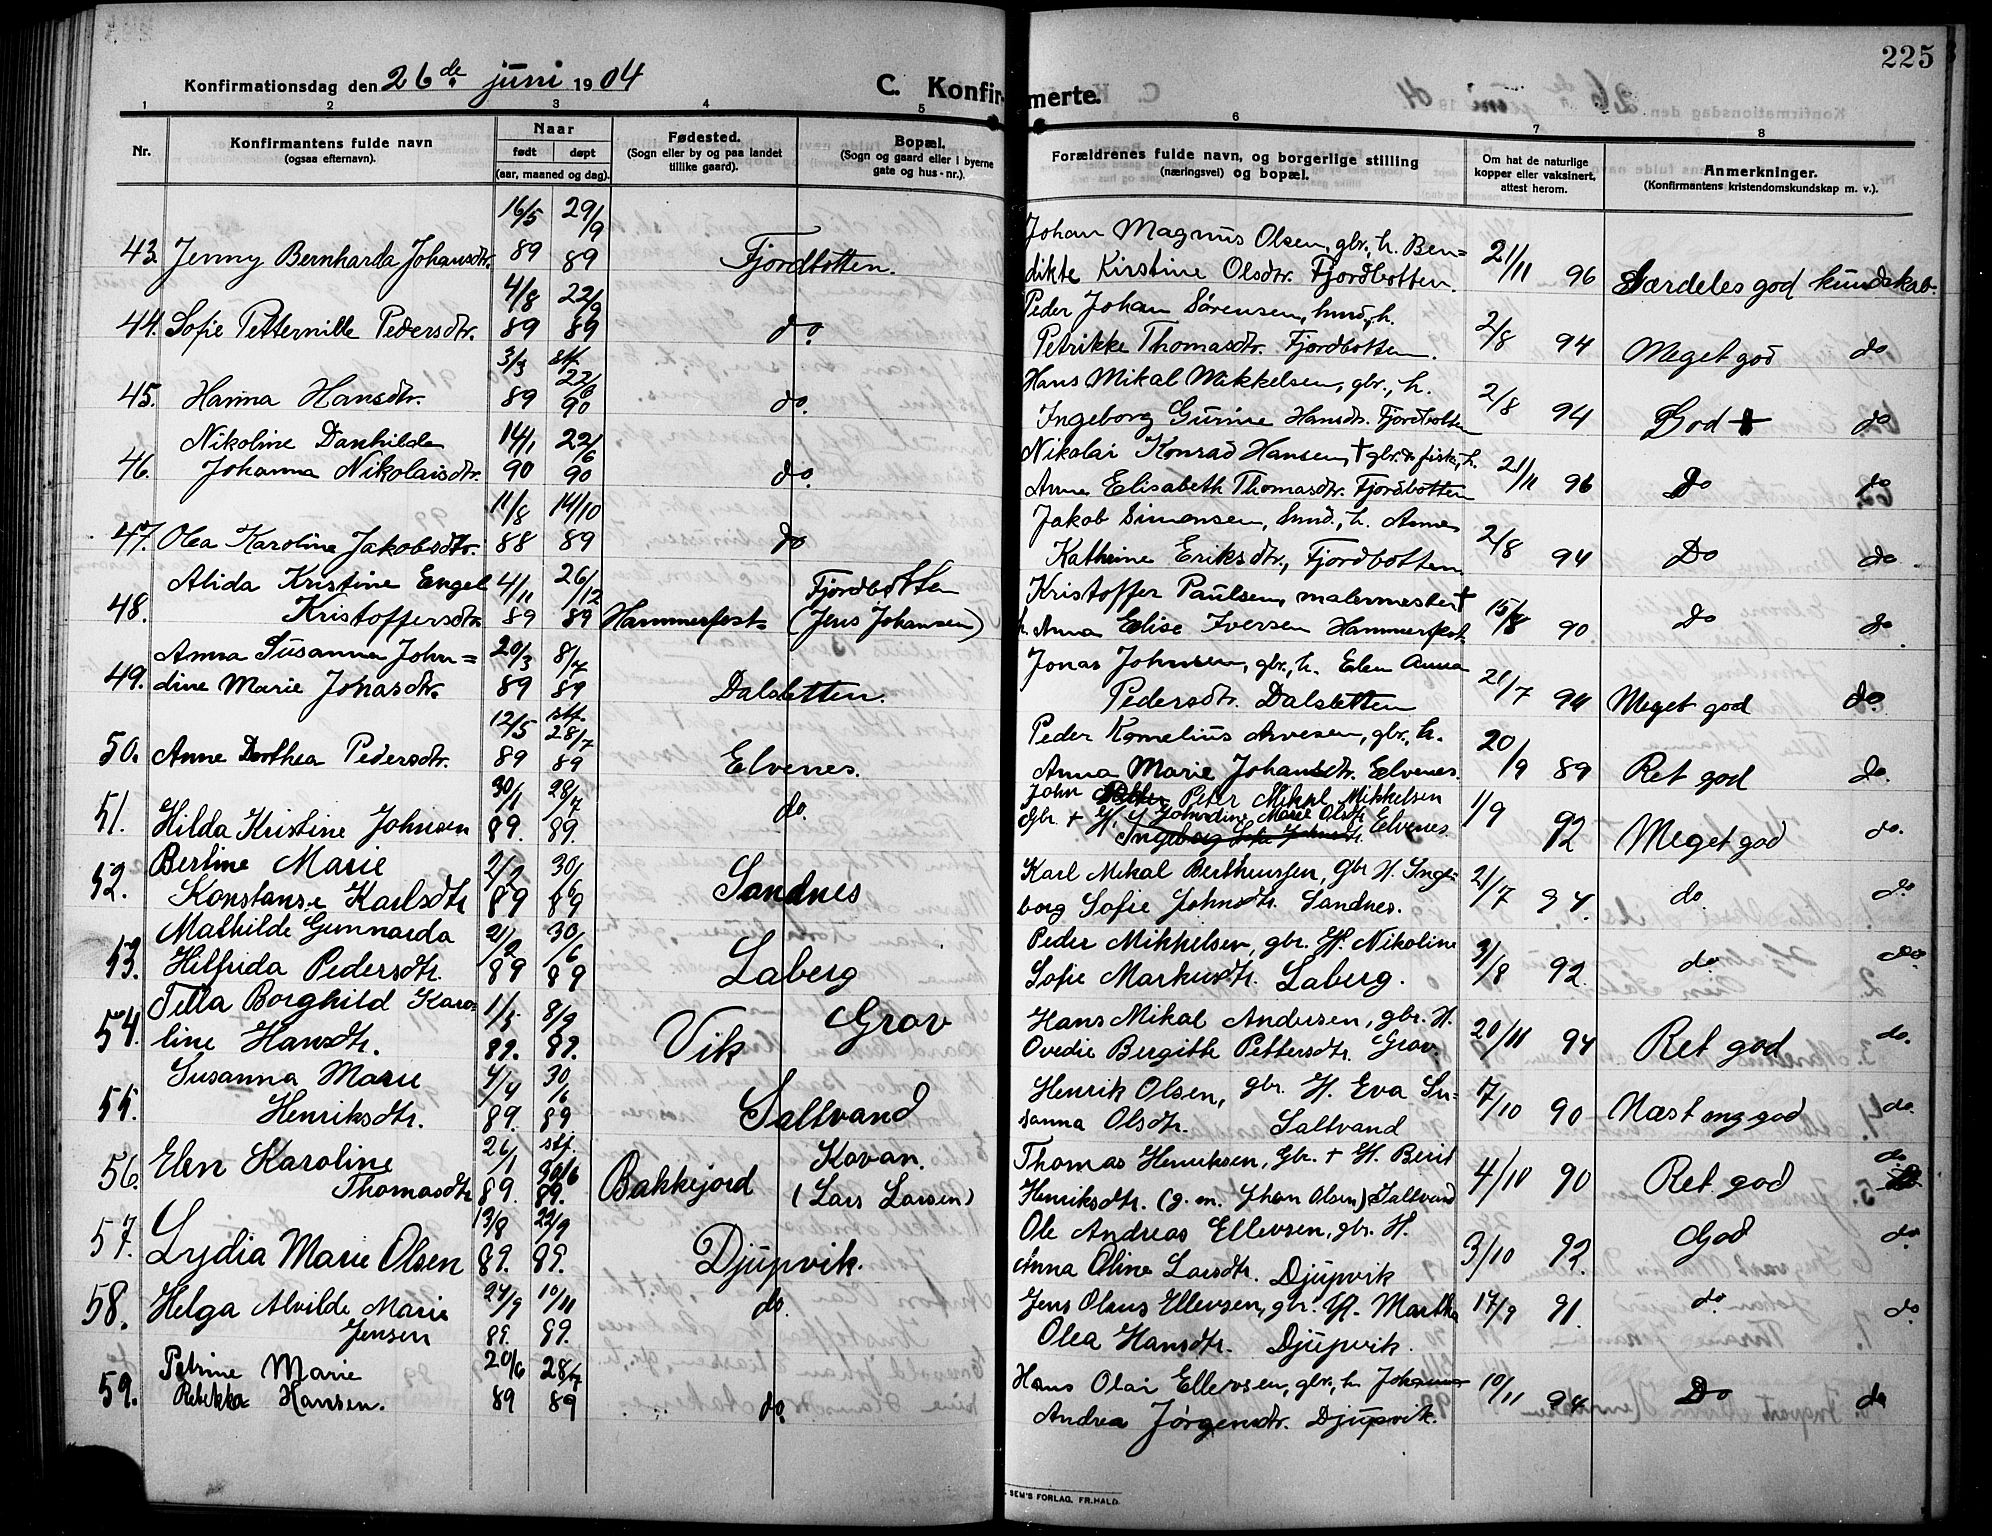 225
Konfirmationsdag den 26de juni 1904
C. Konfirmerte.
1 2 3 4 5 6 7 8
Nr.
Konfirmantens fulde navn
(ogsaa efternavn).
Naar
født døpt
(aar, maaned og dag).
Fødested.
(Sogn eller by og paa landet
tillike gaard).
Bopæl.
(Sogn og gaard eller i byerne
gate og hus-nr.).
Forældrenes fulde navn, og borgerlige stilling
(næringsvei) og bopæl.
Om hat de naturlige
kopper eller vaksinert,
attest herom.
Anmerkninger.
(Konfirmantens kristendomskundskap m. v.).
16/5 29/9 Johan Magnus Olsen, gbr., h. Ben=
43. Jenny Bernharda Johansdtr. 89 89 Fjordbotten. dikte Kirstine Olsdtr. Fjordbotten. 21/11 96 Særdeles god kundskab.
4/8 22/9 Peder Johan Sørensen, Inds., h.
44. Sofie Petternille Pedersdtr. 89 89 do. Petrikke Thomasdtr. Fjordbotten. 2/8 94 Meget god do
3/3 stf. 22/6 Hans Mikal Mikkelsen, gbr., h.
45. Hanna Hansdtr. 89 90 do. Ingeborg Gurine Hansdtr. Fjordbotten 2/8 94 God + do
Nikoline Danhilde 14/1 22/6 Nikolai Konrad Hansen, + gbr. & fisk., h.
46. Johanna Nikolaisdtr. 90 90 do. Anne Elisabeth Thomasdtr. Fjordbotten 21/11 96 Do do
11/8 14/10 Jakob Simonsen, Inds., h. Anne
47. Olea Karoline Jakobsdtr. 88 89 do Kathrine Eriksdtr., Fjordbotten. 2/8 94 Do do
Alida Kristine Engel 4/11 26/12 Fjordbotten Kristoffer Paulsen, malermester +
48. Kristoffersdtr. 89 89 Hammerfest (Jens Johansen) h. Anna Elise Iversen Hammerfest. 15/8 90. Do do
Anna Susanna John= 20/3 8/7 Jonas Johnsen, gbr., h. Elen Anna
49. dine Marie Jonasdtr. 89 89 Dalsletten. Pedersdtr. Dalsletten 21/7 94 Meget god do.
12/5 stf. 28/7 Peder Kornelius Arvesen, gbr., h.
50. Anne Dorthea Pedersdtr. 89 89 Elvenes. Anna Marie Johansdtr. Elvenes. 20/9 89 Ret god do.
30/1 28/7 do. John Peter Mikal Mikkelsen
51. Hilda Kristine Johnsen 89. 89. Gbr. + H. Johndine Marie Olsdtr. Elvenes 1/9 92 Meget god do.
Ingeborg Sofie Johnsdtr.
Bertine Marie 2/2 30/6 Karl Mikal Bertheussen, Gbr. H. Inge-
52. Konstanse Karlsdtr. 89 89 Sandnes borg Sofie Johnsdtr. Sandnes. 21/7 94. do. do
Mathilde Gunnarda 21/2 30/6 Peder Mikkelsen, gbr. H. Nikoline
53. Hilfrida Pedersdtr. 89 89 Laberg Sofie Markusdtr. Laberg. 3/8 92. do. do.
Tella Borghild Karo= 1/5 8/9 Grov Hans Mikal Andersen, gbr. H.
54. line Hansdtr. 89. 89. Vik Ovedie Bergithe Pettersdtr. Grov. 20/11 94 Ret god do.
Susanna Marie 4/4 30/6 Henrik Olsen, gbr. H. Eva Su-
55. Henriksdtr. 89. 89. Saltvand sanna Olsdtr. Saltvand 7/10 90 Næst mg. god do.
Elen Karoline 26/1 stf. 30/6 Kovan. Thomas Henriksen, Gbr. + H. Berit
56. Thomasdtr. 89. 89. Bakkejord (Lars Larsen) Henriksdtr. (g. m. Johan Olsen) Saltvand 4/10 90 Ret god do
13/8 22/9 Ole Andreas Ellevsen, gbr. H.
57. Lydia Marie Olsen 89. 89. Djupvik. Anna Oline Larsdtr. Djupvik 3/10 92. God do.
Helga Alvilde Marie 24/9 10/11 do. Jens Olaus Ellevsen, gbr. H. Martha
58. Jensen 89. 89. Olea Hansdtr. Djupvik. 17/9 91. do. do
Petrine Marie 20/6 28/7 Hans Olai Ellevsen, gbr., h. Johanna
59. Rebekka Hansen. 89 89 do. Andrea Jørgensdtr. Djupvik. 10/11 94 Do do
SEM'S FORLAG, FR.HALD.